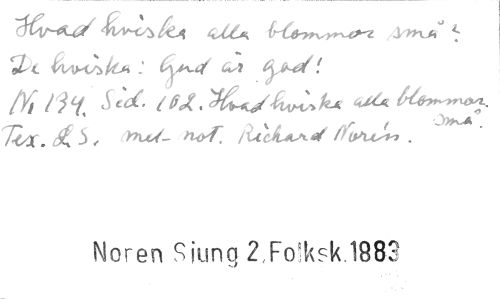 Hvad hviska alla blommor små?
De hviska: Gud är god!
N. 134. Sid. 102. Hvad hviska alla blommor
små.
Tex. L. S. mel- not. Richard Norén.
Noren Sjung 2, Folksk. 1883